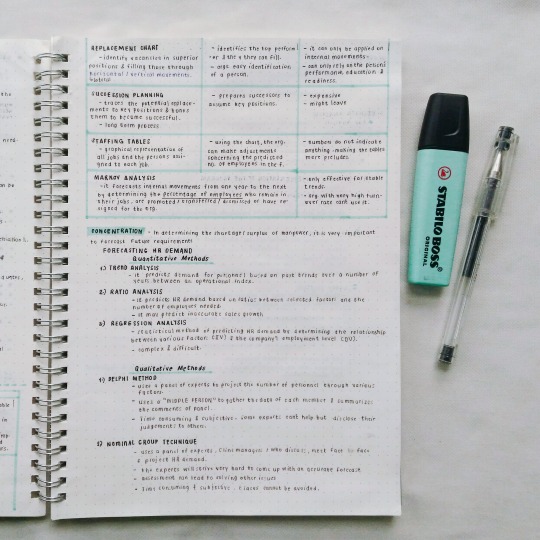 REPLACEMENT CHART
- identify vacancies in superior
positions & filling those through
horizontal / vertical movements.
- identifies the top perform
er & the # they can fill.
- easy identification
of a person.
- it can only be applied on
internal movements.
- can only rely on the person's
performance, education &
readiness.
SUCCESSION PLANNING
- traces the potential replace-
ments to key positions &
them to become successful.
- long term process
- prepares successors to
assume key positions.
- expensive
- might leave
STAFFING TABLES
- graphical representation of
all jobs and the persons assi-
gned to each job.
- using the chart, the org.
can make adjustments
concerning the predicted
no. of employees in the f.
- numbers do not indicate
anything - making the tables
more
MARKOV ANALYSIS
- it forecasts internal movements from one year to the next
by determining the percentage of employees who remain in
their jobs, are promoted / transferred / dismissed or have re-
signed for the org.
- only effective for stable
trends.
- org with very high turn-
over rate cant use it.
CONCENTRATION - In determining the shortage / surplus of manpower, it is very important
to forecast future requirement!
FORECASTING HR DEMAND
Quantitative Methods
1) TREND ANALYSIS
- it predicts demand for personnel based on past trends over a number of
years between an operational index.
2) RATIO ANALYSIS
- it predicts HR demand based on ratios between selected factors and the
number of employees needed.
- it may predict inaccurate sales growth.
3) REGRESSION ANALYSIS
- statistical method of predicting HR demand by determining the relationship
between various factors (IV) & the company's employment level (DV).
- complex & difficult.
Qualitative Methods
1) DELPHI METHOD
- uses a panel of experts to project the number of personnel through various
factors.
- uses a "MIDDLE PERSON" to gather the data of each member & summarize
the comments of panel.
- Time consuming & subjective. Some experts cant help but disclose their
judgements to others.
2) NOMINAL GROUP TECHNIQUE
- uses a panel of experts, (line managers) who discuss, meet face to face
& project HR demand.
- the experts will strive very hard to come up with an accurate forecast
- assessment can lead to solving other issues
- Time consuming & subjective. cannot be avoided.
STABILO BOSS
ORIGINAL